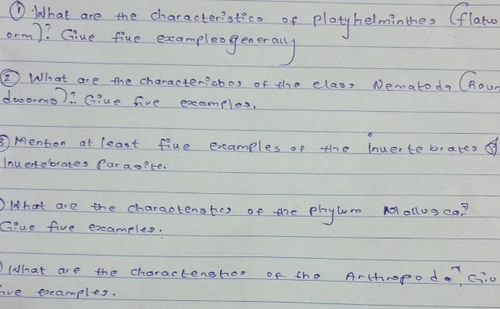 ① What are the characteristics of platyhelminthes (flatw
orm)? Give five examples generally
② What are the characteristics of the class Nematoda (Roun
dworms)? Give five examples.
3) Mention at least five examples of the invertebrates &
Invertebrates Parasite.
) What are the characteristics of the phylum Mollusca?
Give five examples.
) What are the characteristics of the Arthropoda? Giv
five examples.